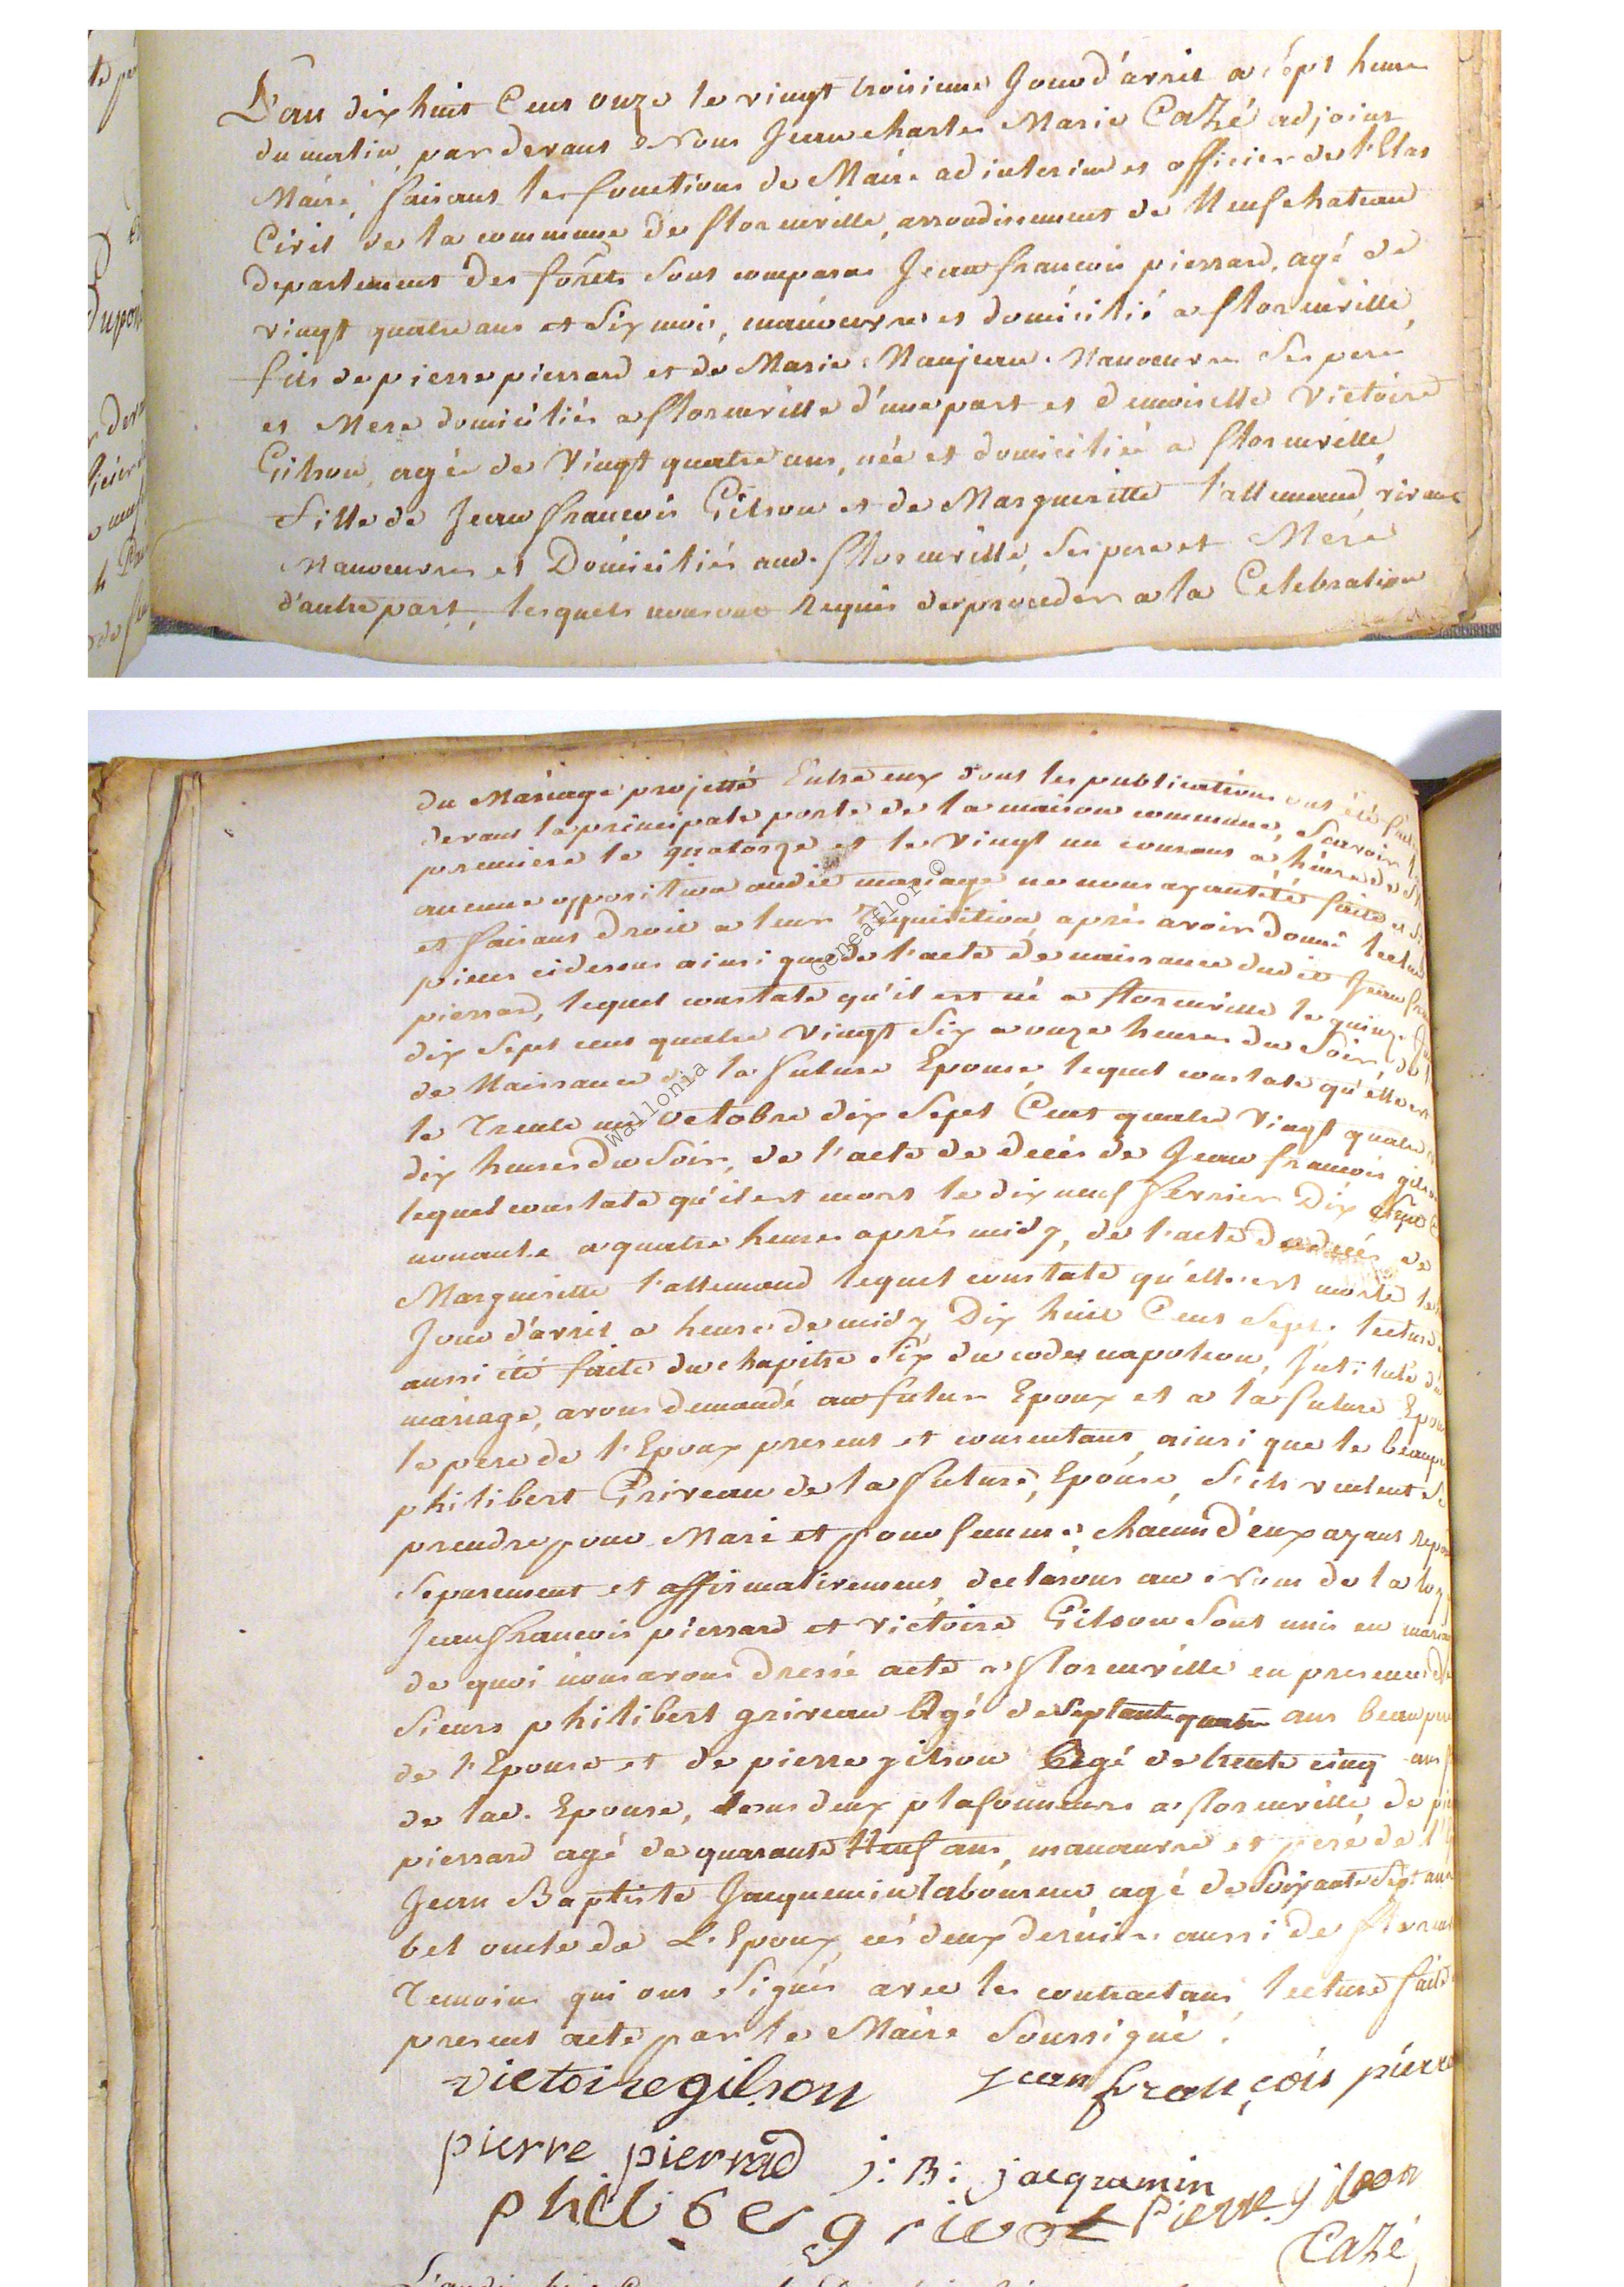 L'an dix huit Cent onze le vingt troisieme Jour d'avril a sept heure
du matin, par devant Nous Jean charles Marie Cazé adjoint
Maire, faisant les fonctions de Maire ad interim et officier de l'Etat
Civil de la commune de florenville, arrondissement de Neufchateau
departement des forêts sont comparus Jean francois pierrard, agé de
vingt quatre ans et six mois, manoeuvre et domicilié a florenville,
fils de pierre pierrard et de Marie Manjean Manoeuvre ses pere
et Mere domiciliés a florenville d'une part et demoiselle Victoire
Gilson, agée de Vingt quatre ans, née et domiciliée a florenville,
fille de Jean francois Gilson et de Margueritte l'allemand, vivant
Manoeuvres et Domiciliés aud. florenville, ses pere et Mére
d'autre part, lesquels nous ont Requis de proceder a la Celebration
du Mariage projetté Entre eux dont les publications ont été
devant la principale porte de la maison commune, Savoir
premiere le quatorze et le vingt un courant a heure de
aucune opposition audit mariage ne nous ayant été faite et
et faisant droit a leur Requisition, aprés avoir donné
pieces cidessus ainsi que de l'acte de naissance dudit Jean
pierrard, lequel constate qu'il est né a florenville le quinze
dix Sept cent quatre Vingt Six a onze heures du Soir,
de Naissance de la future Epouse, lequel constate qu'elle
le Trente un octobre dix Sept Cent quatre Vingt quatre
dix heures du Soir, de l'acte de decés de Jean francois
lequel constate qu'il est mort le dix neuf fevrier Dix Sept
nonante a quatre heures aprés midy, de l'acte de decés de
Margueritte l'allemand lequel constate qu'elle est morte
Jour d'avril a heure de midy Dix huit Cent Sept, lecture
aussi été faite du chapitre Six du code napoleon, Jntitulé du
mariage, avons demandé au futur Epoux et a la future
le pere de l'Epoux present et consentant, ainsi que le
philibert Griveau de la future Epouse, S'ils veulent se
prendre pour Mari et pour femme, chacun d'eux ayant
Separement et affirmativement, declarons au Nom de la
Jean francois pierrard et victoire Gilson Sont unis en
de quoi nous avons dressé acte a florenville en presence
Sieurs philibert griveau agé de Septante quatre ans
de l'Epouse et de pierre gilson agé de trente cinq ans
de lad. Epouse, tous deux plafonneurs a florenville, de
pierrard agé de quarante Neuf ans, manoeuvre et peré de
Jean Baptiste Jacquemin laboureur agé de Soixante Sept ans
bel oncle de L'Epoux, cés deux derniers aussi de
Temoins qui ont Signés avec les contractans, lecture faite
present acte par le Maire Soussigné.
victoire gilson jean françois
pierre pierrad j: B: jacqramin
philiber grivot Pierre gilson
Cazé
Geneaflor ©
Wallonia